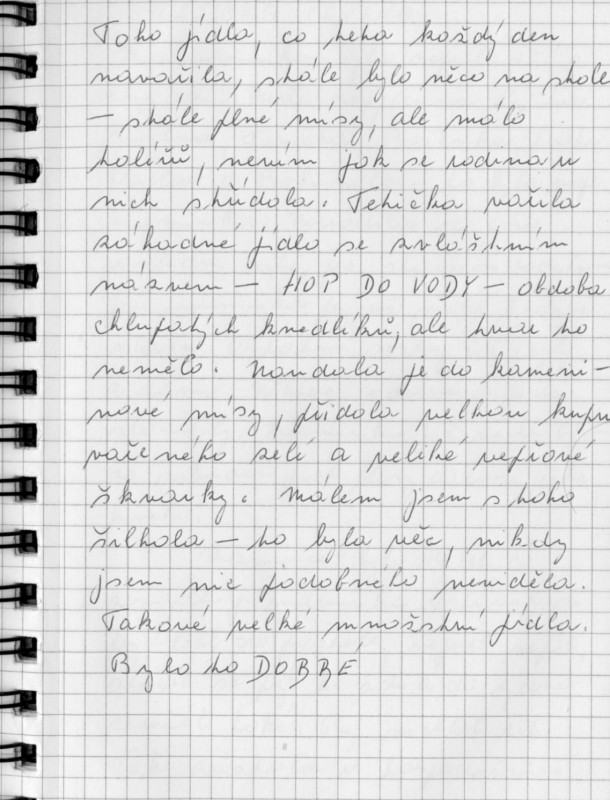 Toho jídla, co teta každý den
navařila, stále bylo něco na stole
– stále plné mísy, ale málo
talířů, nevím jak se rodina u
nich střídala. Tetička vařila
záhadné jídlo se zvláštním
názvem – HOP DO VODY – obdoba
chlupatých knedlíků, ale tvar to
nemělo. Nandala je do kameni-
nové mísy, přidala velkou kupu
vařeného zelí a veliké vepřové
škvarky. Málem jsem s toho
šilhala – to byla věc, nikdy
jsem nic podobného neviděla.
Takové velké množství jídla.
Bylo to DOBRÉ